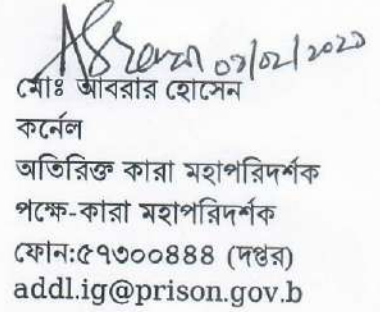 ০২/০২/২০২০
মোঃ আবরার হোসেন
কর্নেল
অতিরিক্ত কারা মহাপরিদর্শক
পক্ষে-কারা মহাপরিদর্শক
ফোন:৫৭৩০০৪৪৪ (দপ্তর)
addl.ig@prison.gov.b